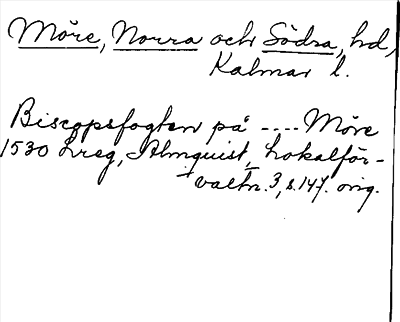 Möre, Norra och Södra, hd,
Kalmar l.
Biscopsfogten på ---- Möre
1530 Lreg, Almquist, Lokalför-
valtn. 3, s. 147. orig.